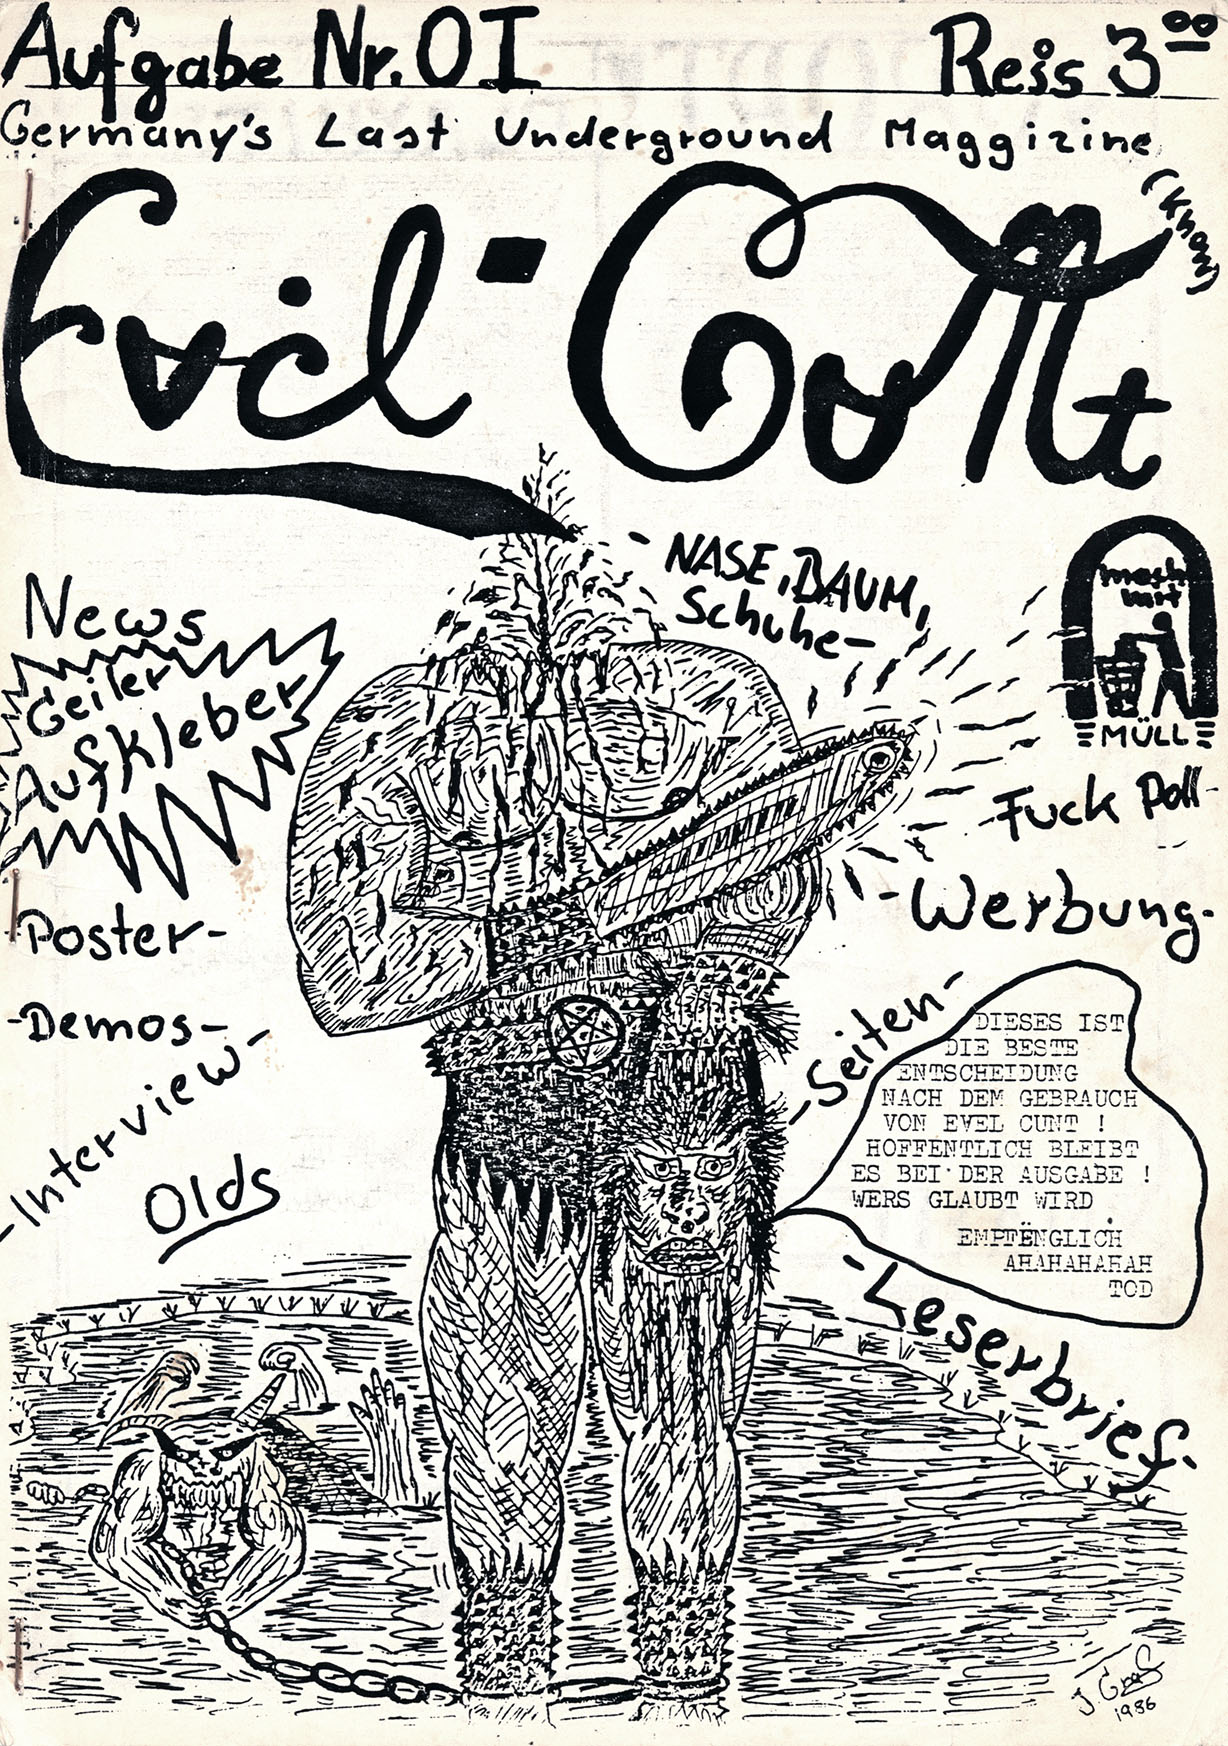 Aufgabe Nr. 01
Reis 3.00
Germany's Last Underground Maggizine
Evil-Cunt
(Khan)
News
Geiler
Aufkleber
Poster-
-Demos-
-Interview-
Olds
- NASE, BAUM,
Schuhe-
mach
mit
MÜLL
Fuck Poll-
-Werbung-
-Seiten-
DIESES IST
DIE BESTE
ENTSCHEIDUNG
NACH DEM GEBRAUCH
VON EVEL CUNT !
HOFFENTLICH BLEIBT
ES BEI DER AUSGABE !
WERS GLAUBT WIRD
EMPFÄNGLICH
AHAHAHAHAH
TOD
-Leserbrief-
J. Graf
1986